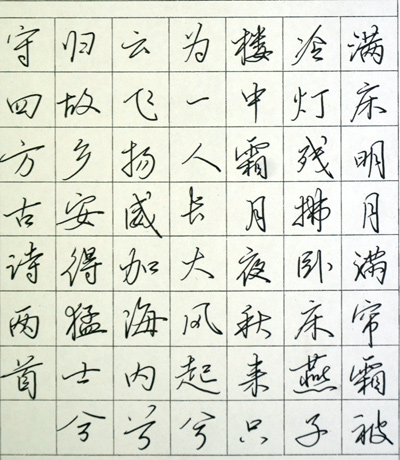 满床明月满帘霜被
冷灯残拂卧床燕子
楼中霜月夜秋来只
为一人长大风起兮
云飞扬威加海内兮
归故乡安得猛士兮
守四方古诗两首